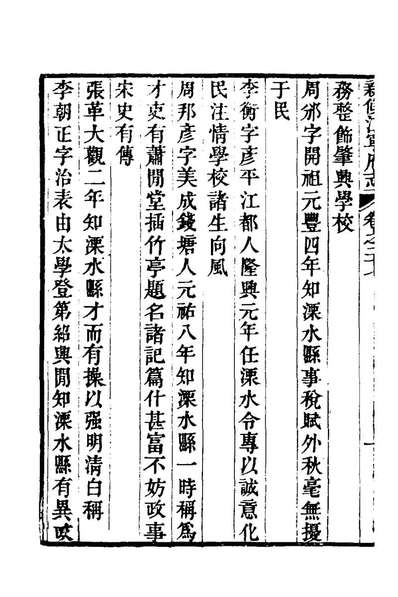 新修江寧府志 卷之二十七
務整飾肇興學校
周邠字開祖元豐四年知溧水縣事稅賦外秋毫無擾
于民
李衡字彥平江都人隆興元年任溧水令專以誠意化
民注情學校諸生向風
周邦彥字美成錢塘人元祐八年知溧水縣一時稱爲
才吏有蕭閒堂插竹亭題名諸記篇什甚富不妨政事
宋史有傳
張革大觀二年知溧水縣才而有操以强明清白稱
李朝正字治表由太學登第紹興閒知溧水縣有異政